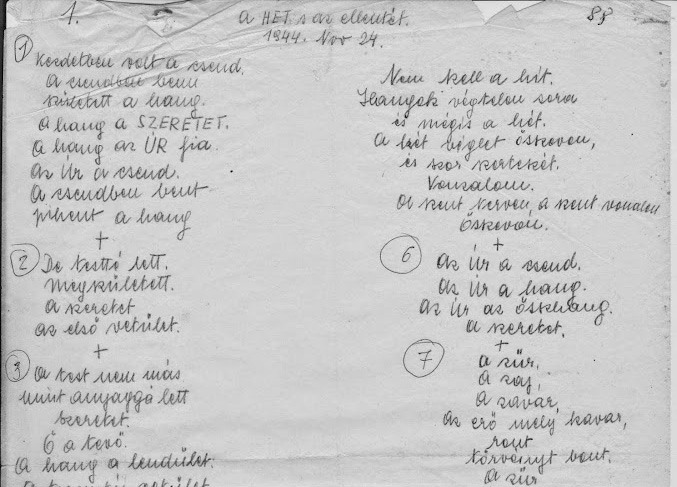 1.
A HÉT s az ellentét.
88
1944. Nov 24.
1
Kezdetben volt a csend,
A csendben benn
született a hang.
A hang a SZERETET.
A hang az ÚR fia.
Az Úr a csend.
A csendben bent
pihent a hang
+
2
De testté lett.
Megszületett.
A szeretet
az első vetület.
+
3
A test nem más
mint anyaggá lett
szeretet.
Ő a tevő.
A hang a lendület.
Nem kell a hit.
Hangok végtelen sora
és mégis a hét.
A hét véglet őskeven,
és szor
Vonzalom.
A szent terven, a szent vonalon
+
6
Az Úr a csend.
Az Úr a hang.
Az Úr az őshang.
A szeretet.
+
7
A zűr,
A zaj,
A zavar,
Az erő mely kavar,
ront
törvényt bont.
A zűr